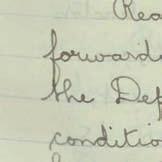 Rea
forward
the Def
conditio